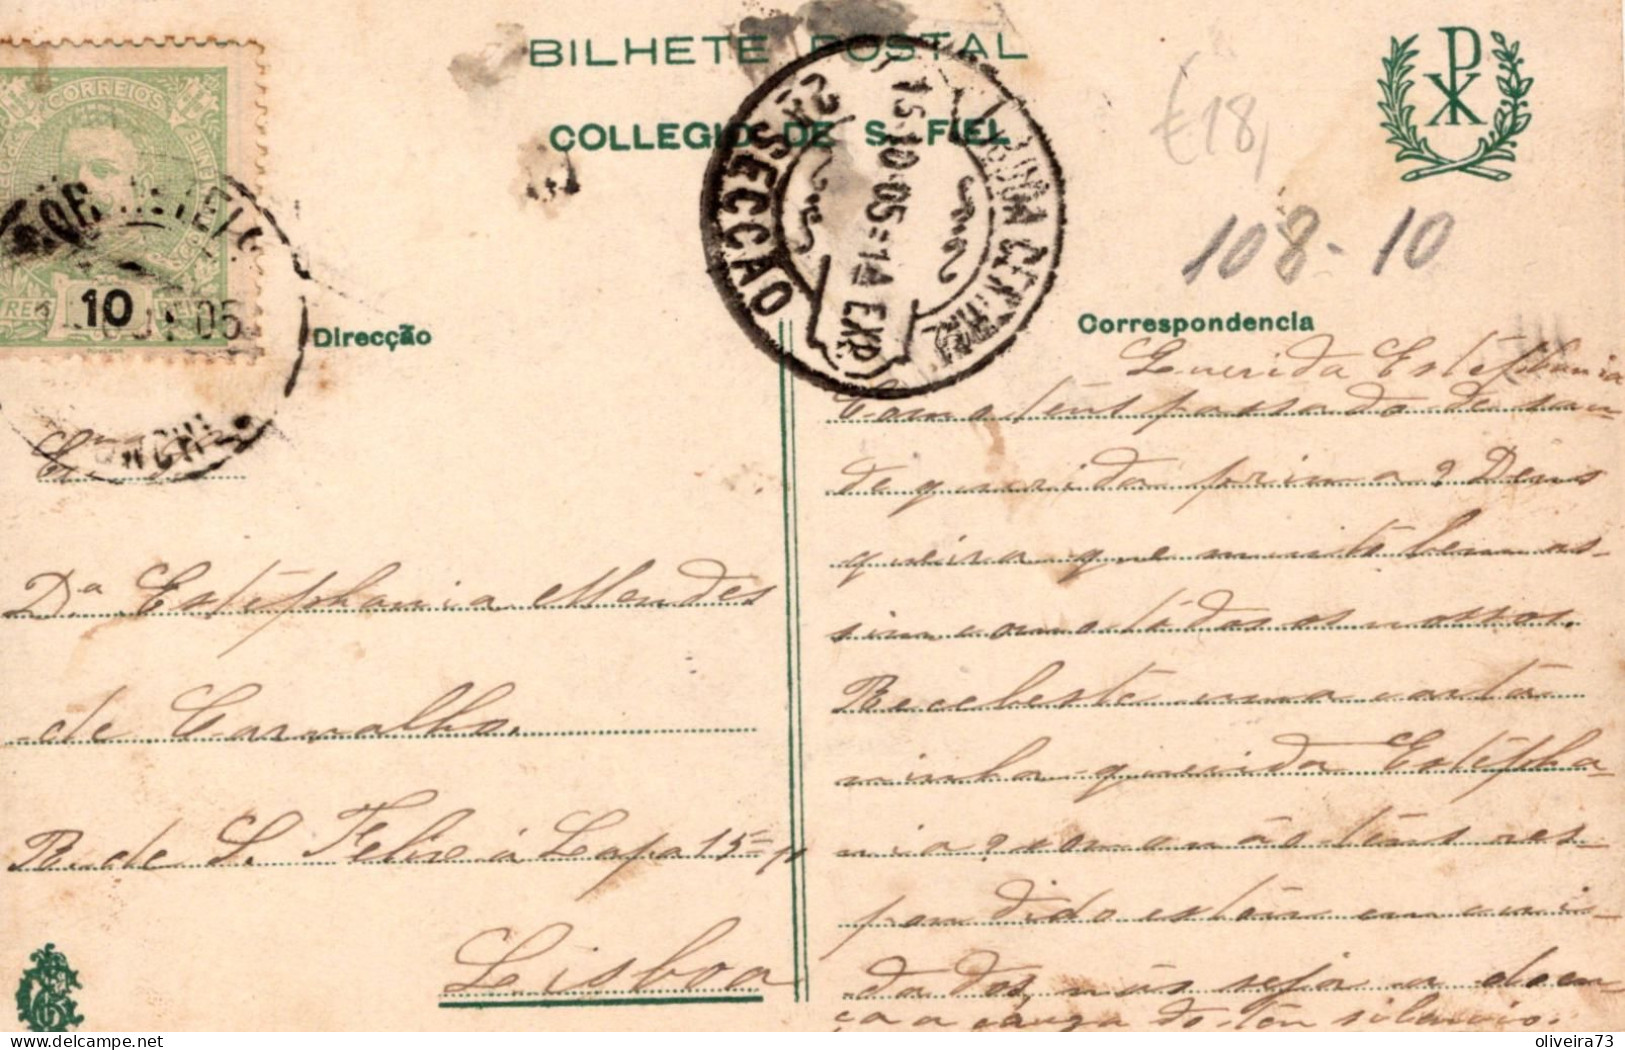 BILHETE POSTAL
COLLEGIO DE S. FIEL
CORREIOS
10
05
2ª SECCÃO
15-10-05=1A EXP.
LISBOA CENTRAL
€18,
108-10
Direcção
Correspondencia
Exma
D.a Estéphania Mendes
de Carvalho.
R. de S. Felix à Lapa 15=
Lisboa
Querida Estéphania
Como têns passado de sau-
de querida prima? Deus
queira que muito bem as-
sim como tôdos os nossos.
Recebeste uma carta
minha querida Estépha-
nia? como não têns res-
pondido estou em cui-
dados não seja a doen-
ça a causa do teu silencio.
oliveira73